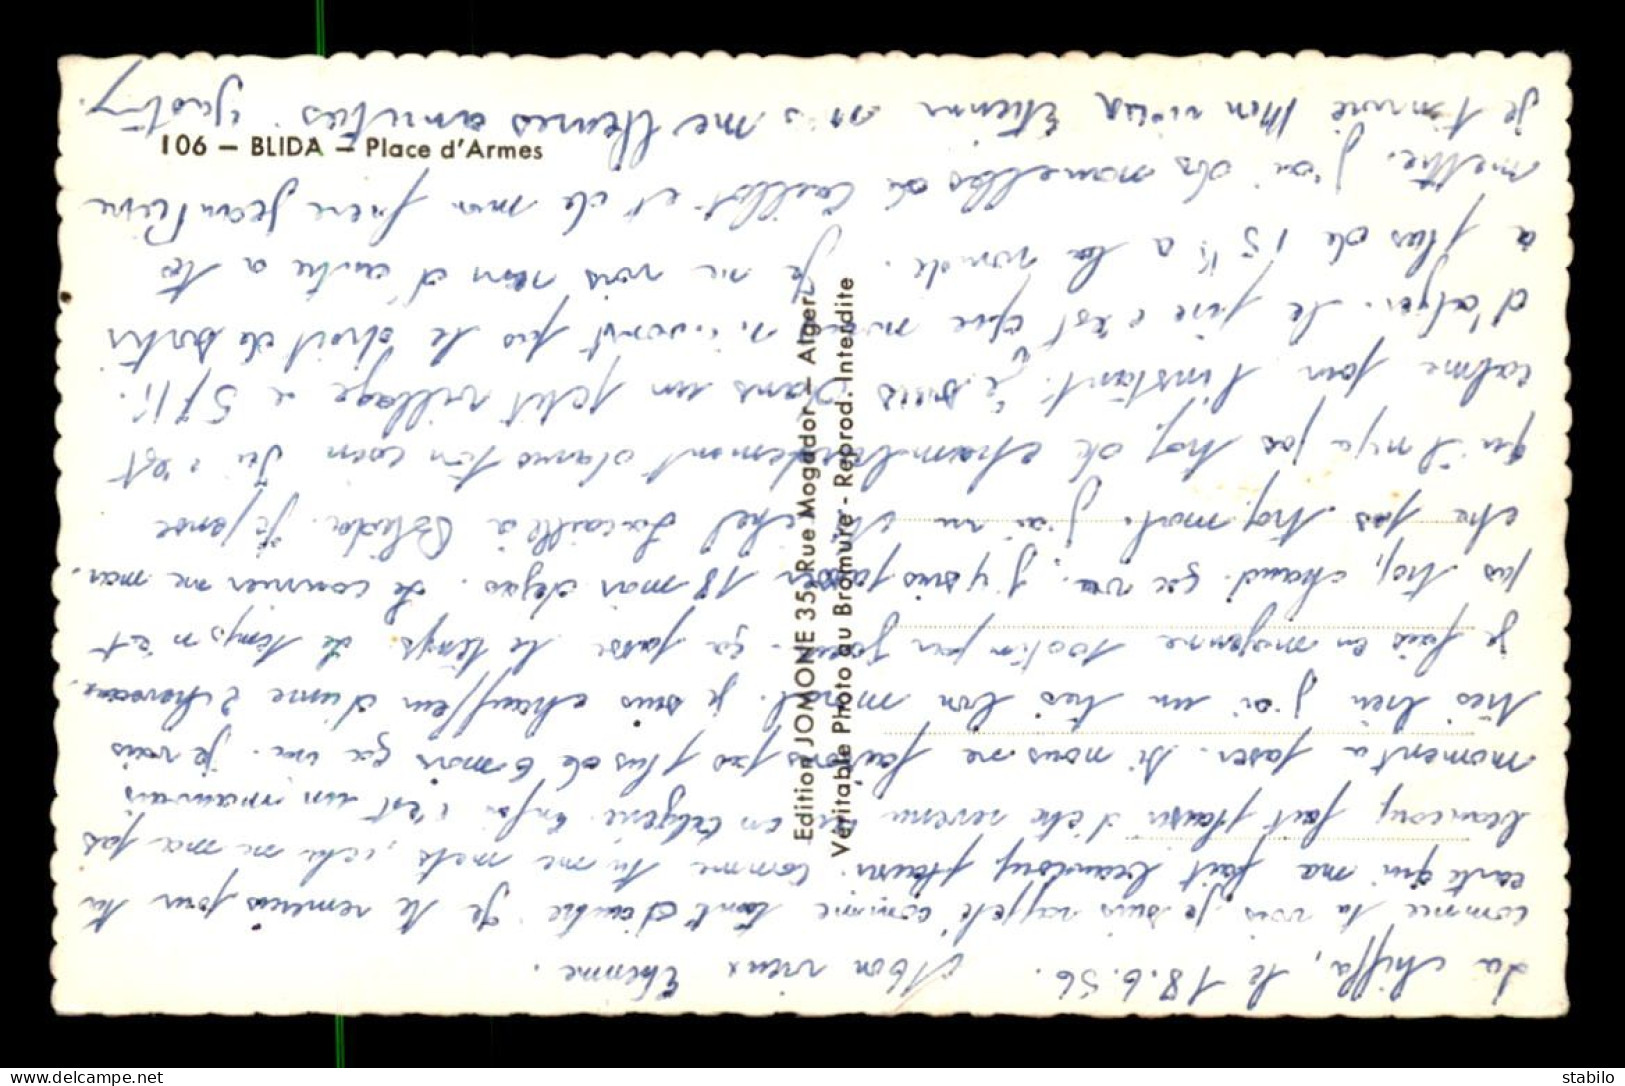 106 — BLIDA — Place d'Armes
Edition JOMONE 35, Rue Mogador — Alger
Véritable Photo au Bromure - Reprod. Interdite
La chiffa, le 18.6.56. Mon vieux Etienne.
comme tu vois je suis rappelé comme tant d'autre. Je te remercis pour ta
carte qui ma fait beaucoup plaisir. Comme tu me mets, cela ne ma pas
beaucoup fait plaisir d'être revenu en Algérie. Enfin c'est un mauvais
moment a passer. Si nous ne faisons pas plus de 6 mois ça ira. je vais
très bien j'ai un très bon moral. je suis chauffeur d'une
je fais en moyenne 100 km par jour. ça passe le temps. Le temps n'est
pas trop chaud. ça va. j'y suis passer 18 mois déjas. Le courrier ne mar.
che pas trop mal. j'ai vu Lacaille à Blida. Je pense
qu'il n'y a pas trop de chamboulement dans ton coin. Ici c'est
calme pour l'instant. Je suis dans un petit village a 5 K.
d'alger. Le pire c'est que nous n'avont pas le droit de sortir
a plus de 15 K a la ronde. Je ne vois rien d'autre a te
mettre. j'ai des nouvelles de Caillot et de mon frère Jean Pierre
je t'envoie Mon vieux Etienne mes meilleures amitiés.
stabilo